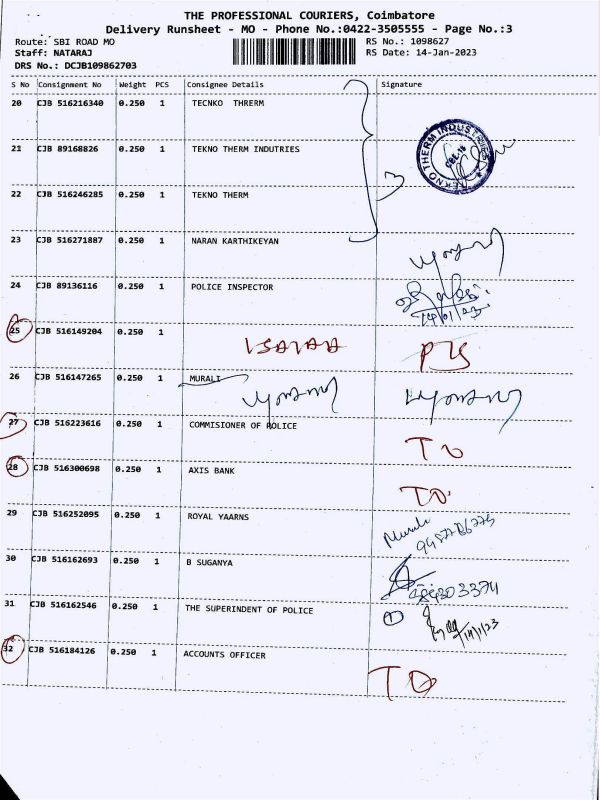 THE PROFESSIONAL COURIERS, Coimbatore
Delivery Runsheet - MO - Phone No.:0422-3505555 - Page No.:3
Route: SBI ROAD MO RS No.: 1098627
Staff: NATARAJ RS Date: 14-Jan-2023
DRS No.: DCJB109862703
S No Consignment No Weight PCS Consignee Details Signature
20 CJB 516216340 0.250 1 TECNKO THRERM
21 CJB 89168826 0.250 1 TEKNO THERM INDUTRIES
TEKNO THERM INDUSTRIES
3
22 CJB 516246285 0.250 1 TEKNO THERM
23 CJB 516271887 0.250 1 NARAN KARTHIKEYAN
24 CJB 89136116 0.250 1 POLICE INSPECTOR
14/01/23
25 CJB 516149204 0.250 1
26 CJB 516147265 0.250 1 MURALI
27 CJB 516223616 0.250 1 COMMISIONER OF POLICE
28 CJB 516300698 0.250 1 AXIS BANK
29 CJB 516252095 0.250 1 ROYAL YAARNS
Murali
30 CJB 516162693 0.250 1 B SUGANYA
31 CJB 516162546 0.250 1 THE SUPERINDENT OF POLICE 1
32 CJB 516184126 0.250 1 ACCOUNTS OFFICER